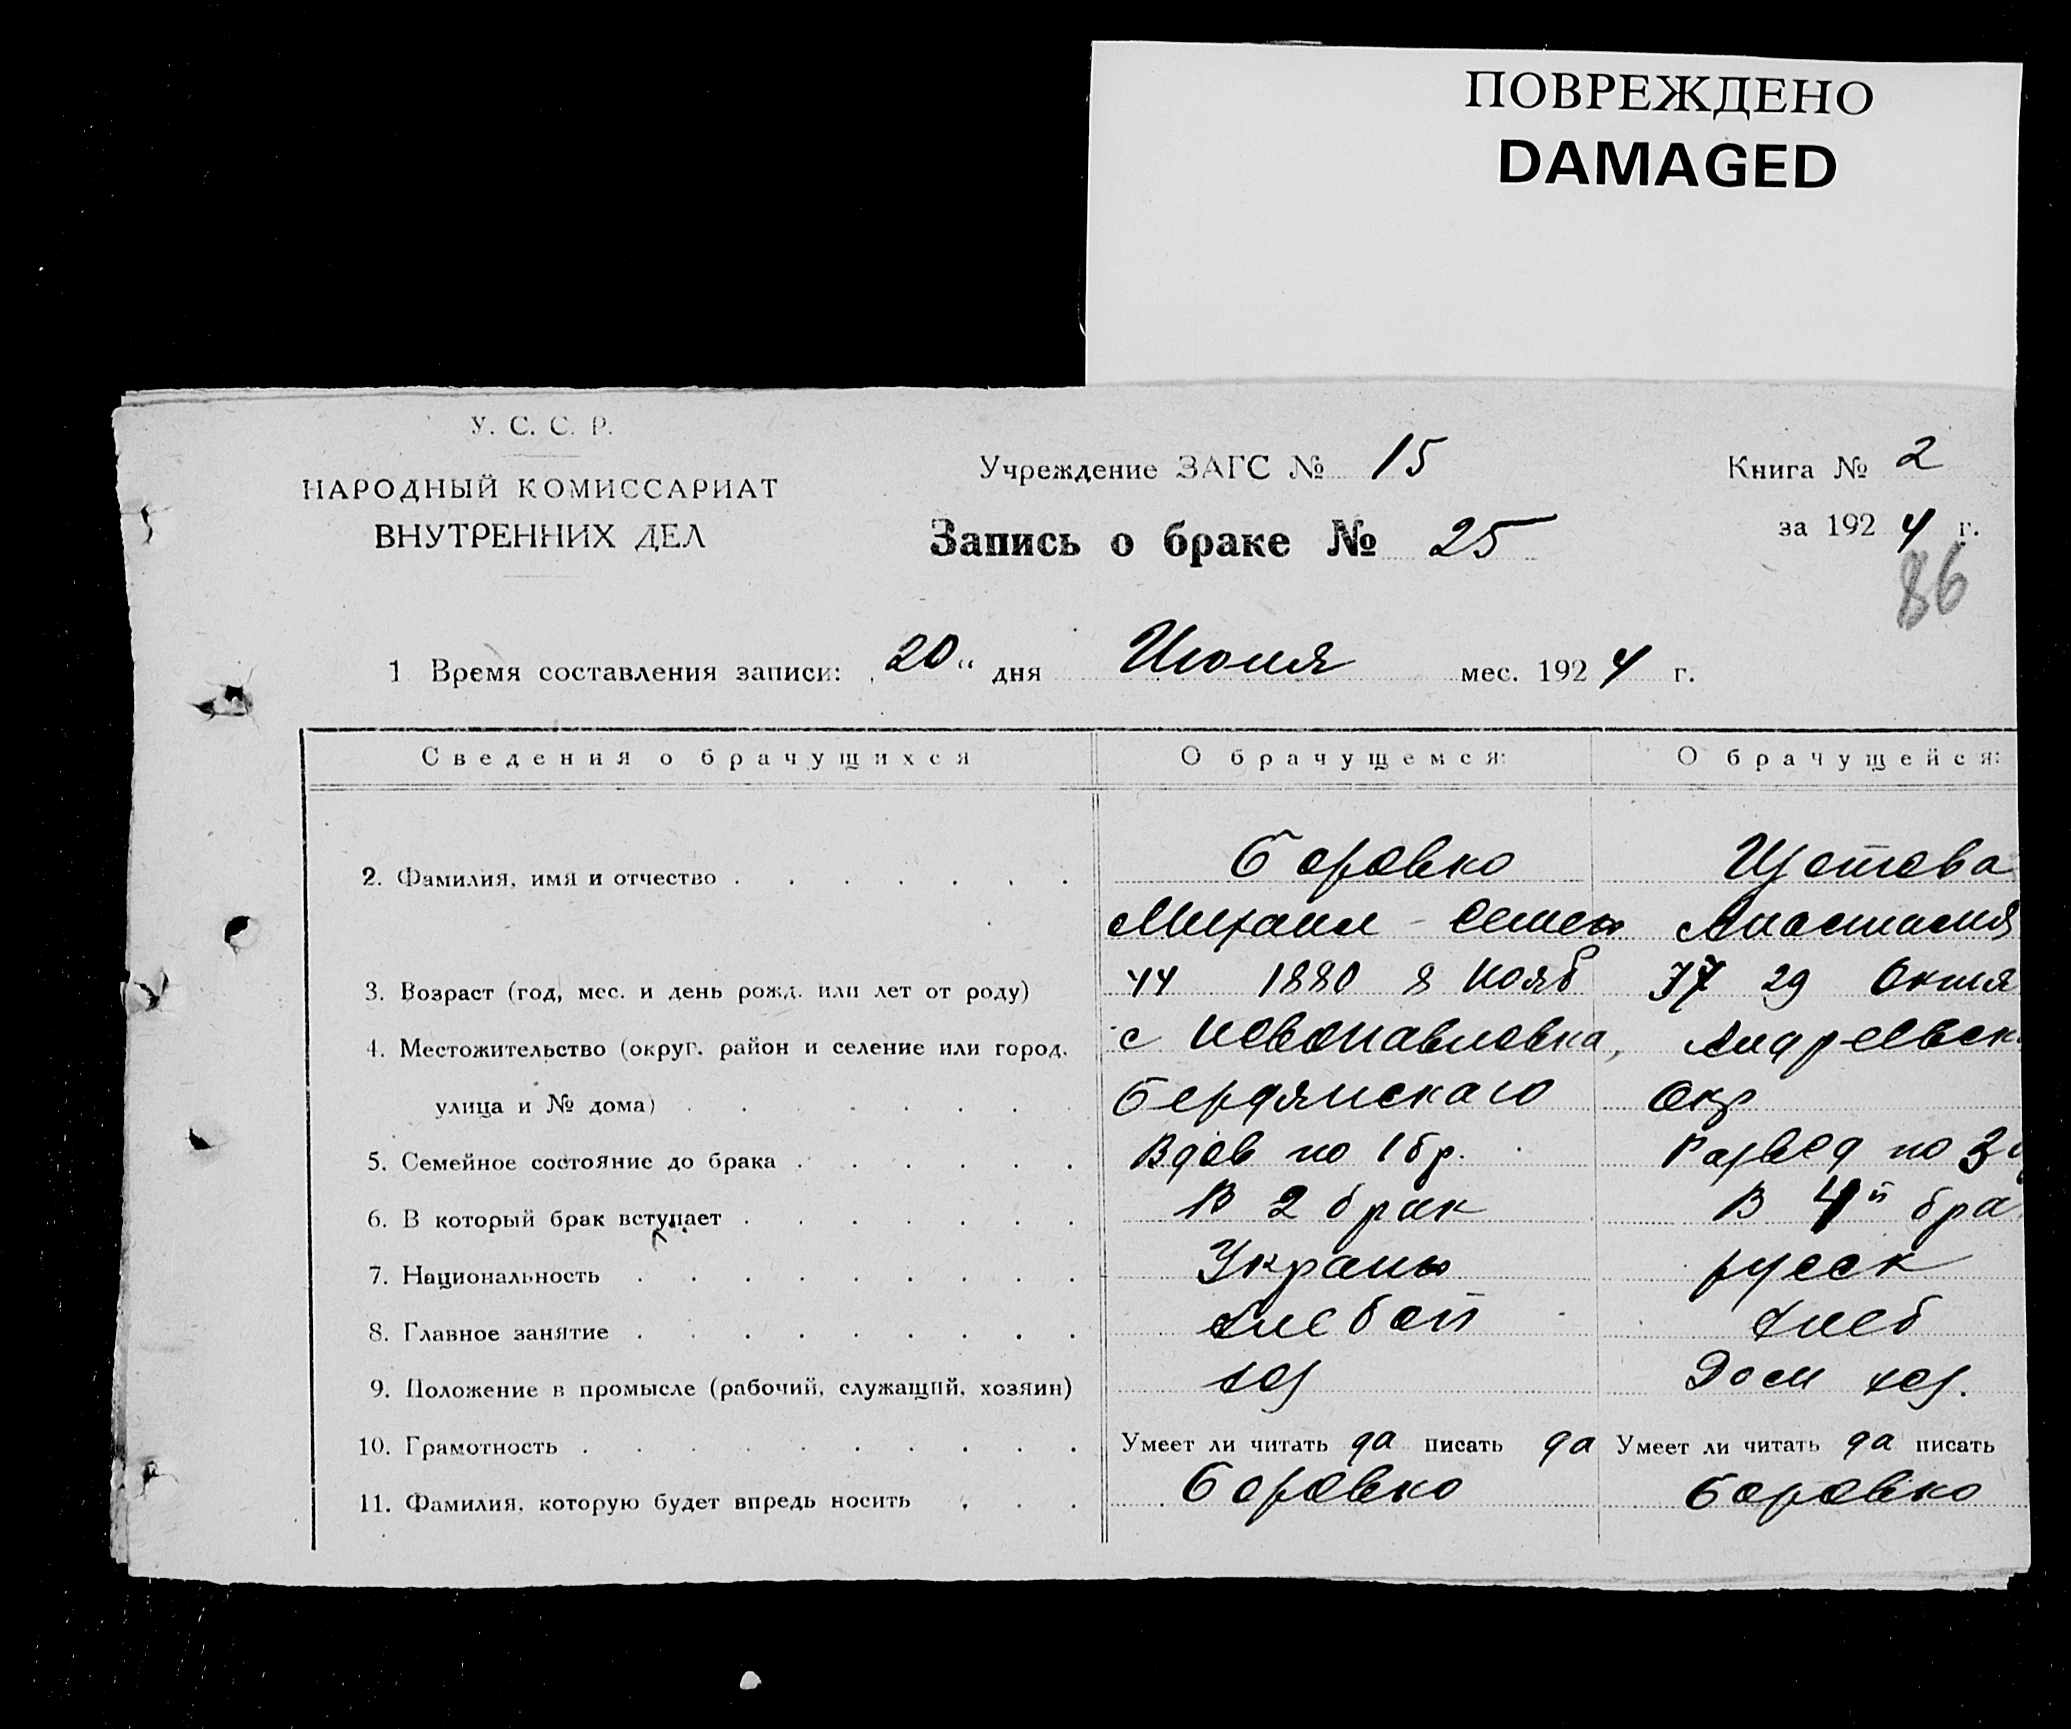 ПОВРЕЖДЕНО
DAMAGED
У. С. С. Р.
НАРОДНЫЙ КОМИССАРИАТ
ВНУТРЕННИХ ДЕЛ
Учреждение ЗАГС № 15
Книга № 2
Запись о браке № 25
за 1924 г.
86
1 Время составления записи: „20“ дня Июня мес. 1924 г.
Сведения о брачущихся О брачущемся: О брачущейся:
2. Фамилия, имя и отчество Боровко Щетова
Михаил - Семен Анастасия
3. Возраст (год, мес. и день рожд. или лет от роду) 44 1880 8 Нояб 37 29 Октя
4. Местожительство (округ. район и селение или город, с Новопавловка, Андреевск
улица и № дома) Бердянскаго Окр
5. Семейное состояние до брака Вдов по 1 бр. Развед по 3
6. В который брак вступает В 2 брак В 4й бра
7. Национальность Украин русск
8. Главное занятие Хлебоп Хлеб
9. Положение в промысле (рабочий, служащий, хозяин) хоз Дом хоз.
10. Грамотность Умеет ли читать да писать да Умеет ли читать да писать
11. Фамилия, которую будет впредь носить Боровко Боровко